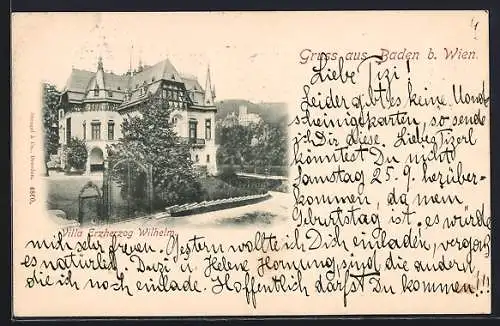 4
Gruss aus Baden b. Wien.
Liebe Tizi!
Leider gibt es keine Mond-
scheinigekarten, so sende
ich Dir diese. Liebe Tizerl
könntest Du nicht
Samstag 25. 9. herüber-
kommen, da mein
Geburtstag ist, es würde
mich sehr freuen. Gestern wollte ich Dich einladen, vergaß
es natürlich. Duzi u. Helene Hornung sind die andern,
die ich noch einlade. Hoffentlich darfst Du kommen!!!
Villa Erzherzog Wilhelm
Stengel & Co., Dresden. 4805.